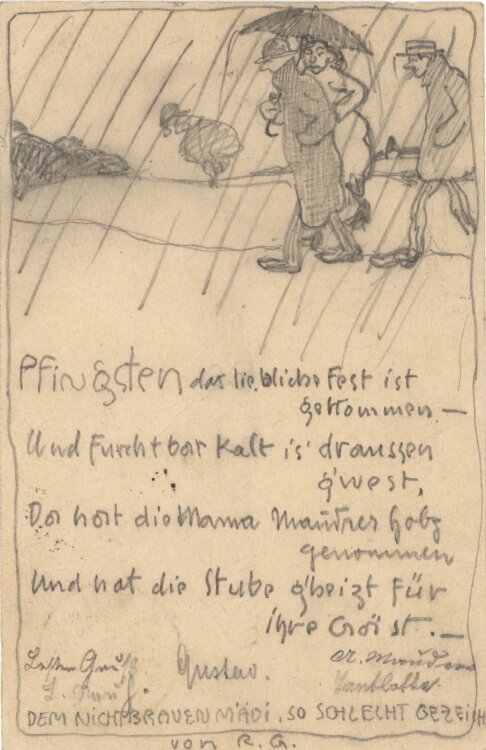 Pfingsten das liebliche Fest ist
gekommen —
Und furchtbar kalt is' draussen
g'west,
Da hat die Mama Holz
genommen
Und hat die Stube g'heizt für
ihre Gäst. —
Gustav.
DEM NICHT BRAVEN MÄDI, SO SCHLECHT GEZEICH
von R. G.